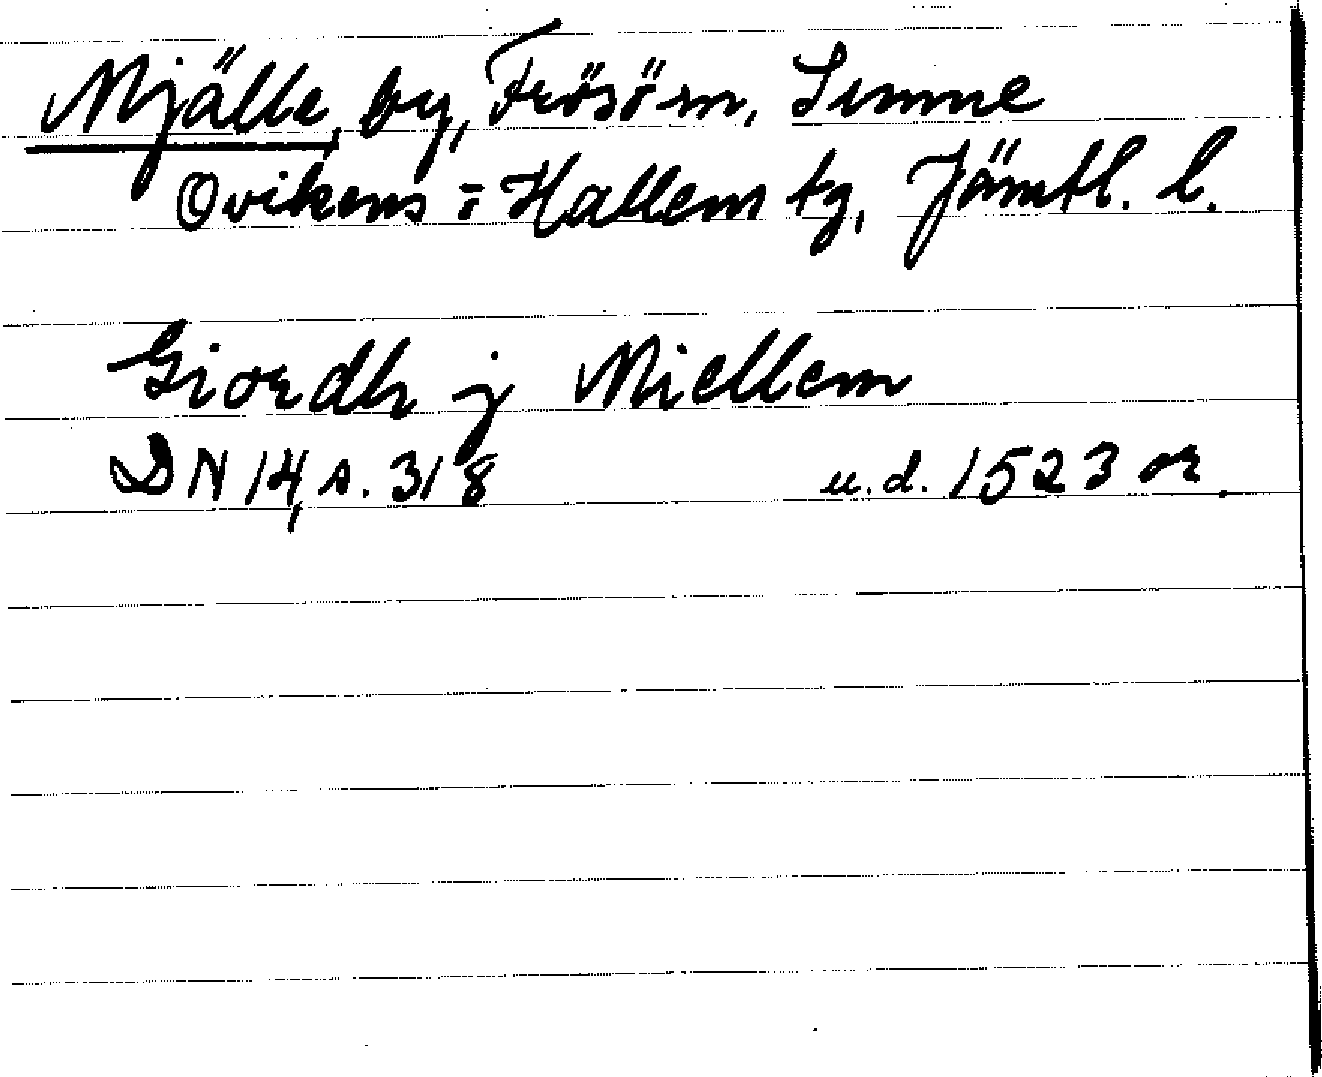 Mjälle, by, Frösö sn, Sunne
Ovikens = Hallem tg, Jämtl. l.
Giordh j Miellem
DN 14, s. 318 u.d. 1523 or.